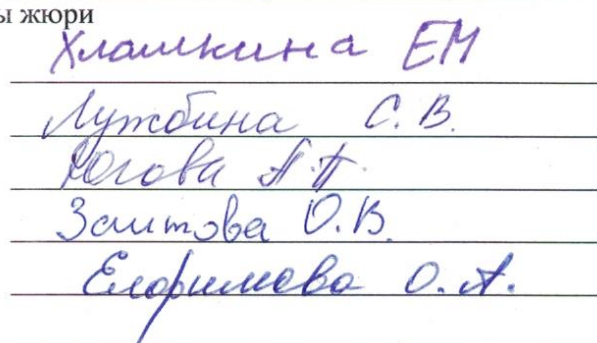 ы жюри
Хламкина ЕМ
Лужбина С. В.
Югова А.П.
Заитова О.В.
Елофимова О.А.